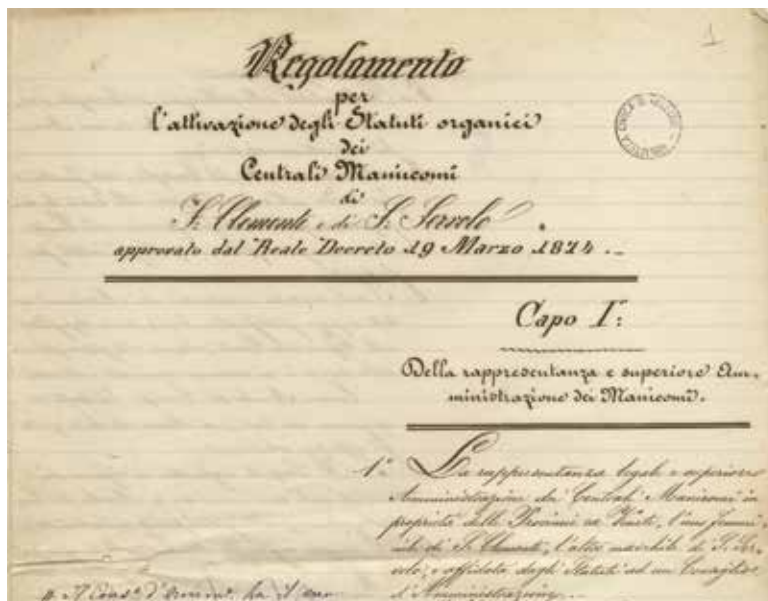 1
Regolamento
per
l'attivazione degli Statuti organici
dei
Centrali Manicomî
di
S. Clemente e di S. Servolo
approvato dal Reale Decreto 19 Marzo 1874.
Capo I°:
Della rappresentanza e superiore Am-
ministrazione dei Manicomî.
1° La rappresentanza legale e superiore
Amministrazione dei Centrali Manicomi in
proprietà delle Provincie ex Venete, l'uno femmi-
nile di S. Clemente, l'altro maschile di S. Ser-
volo, è affidata dagli Statuti ad un Consiglio
d'Amministrazione.
Il Cons° d'Ammin°. ha il